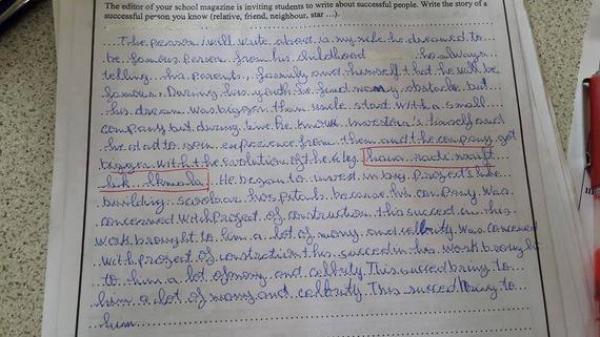 The editor of your school magazine is inviting students to write about successful people. Write the story of a
successful person you know (relative, friend, neighbour, star ...).
The person i will write about is my uncle he dreamed to
be famous person from his childhood he always
telling his parents, family and himself that he will be
famous, During his youth he find many obstacls but
his dream was bigger than uncle start with a small
company but during time he known investors himself and
he start to experience from them and the company get
bigger with the evolution of the
He began to invest in big projects like
building schools or hospitals because his company was
concerned with project of construction this succed in this
work brought to him a lot of mony and celbrity was concerned
with project of construction this succed in his work brong
to him a lot of mony and celbrity This succed bring to
him a lot of mony and celbrity This succed bring to
him